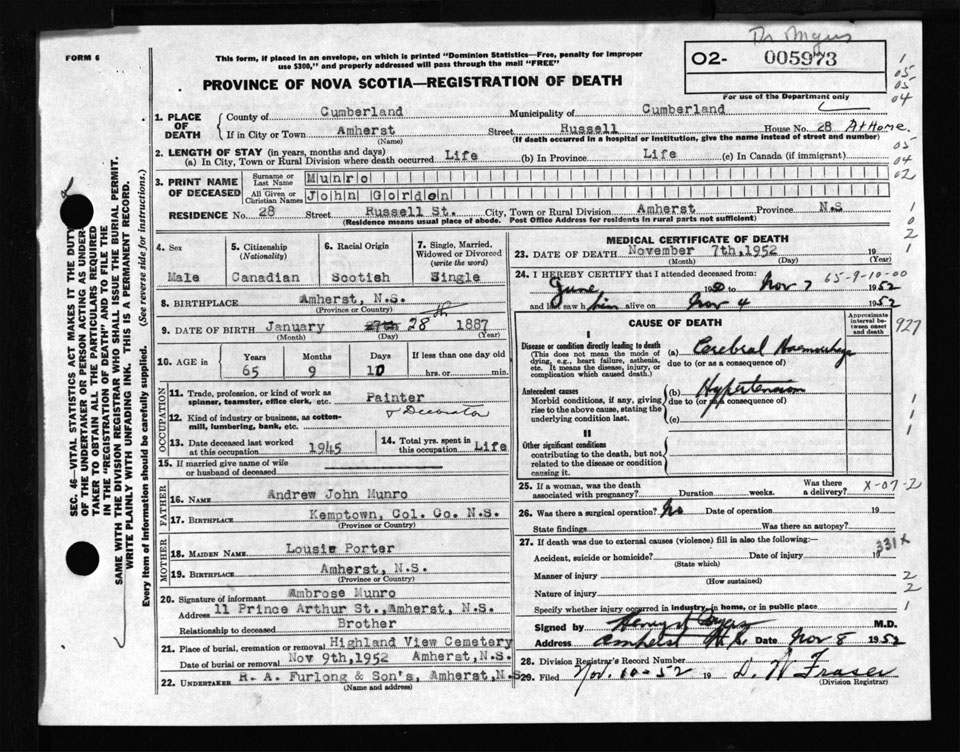 Dr Myers
FORM 6
This form, if placed in an envelope, on which is printed "Dominion Statistics—Free, penalty for improper
use $300," and properly addressed will pass through the mail "FREE"
O2- 005973
For use of the Department only
PROVINCE OF NOVA SCOTIA—REGISTRATION OF DEATH
1. PLACE OF DEATH
County of Cumberland Municipality of Cumberland
If in City or Town Amherst Street Russell House No. 28 At Home.
(Name) (If death occurred in a hospital or institution, give the name instead of street and number)
2. LENGTH OF STAY (in years, months and days)
(a) In City, Town or Rural Division where death occurred Life (b) In Province Life (c) In Canada (if immigrant)
3. PRINT NAME OF DECEASED
Surname or Last Name Munro
All Given or Christian Names John Gordon
RESIDENCE No. 28 Street Russell St. City, Town or Rural Division Amherst Province N.S
(Residence means usual place of abode. Post Office Address for residents in rural parts not sufficient)
4. Sex Male
5. Citizenship (Nationality) Canadian
6. Racial Origin Scotish
7. Single, Married, Widowed or Divorced (write the word) Single
8. BIRTHPLACE Amherst, N.S.
(Province or Country)
9. DATE OF BIRTH January 27th 28th 1887
(Month) (Day) (Year)
10. AGE in Years Months Days If less than one day old
65 9 10 hrs. or min.
OCCUPATION
11. Trade, profession, or kind of work as spinner, teamster, office clerk, etc. Painter
& Decorator
12. Kind of industry or business, as cotton-mill, lumbering, bank, etc.
13. Date deceased last worked at this occupation 1945
14. Total yrs. spent in this occupation Life
15. If married give name of wife or husband of deceased
FATHER
16. NAME Andrew John Munro
17. BIRTHPLACE Kemptown, Col. Co. N.S.
(Province or Country)
MOTHER
18. MAIDEN NAME Lousie Porter
19. BIRTHPLACE Amherst, N.S.
(Province or Country)
20. Signature of informant Ambrose Munro
Address 11 Prince Arthur St., Amherst, N.S.
Relationship to deceased Brother
21. Place of burial, cremation or removal Highland View Cemetery
Date of burial or removal Nov 9th, 1952 Amherst, N.S.
22. UNDERTAKER R. A. Furlong & Son's, Amherst, N.S
(Name and address)
MEDICAL CERTIFICATE OF DEATH
23. DATE OF DEATH November 7th, 1952 19
(Month) (Day) (Year)
24. I HEREBY CERTIFY that I attended deceased from:
65-9-10-00
June 1950 to Nov 7 1952
and last saw him alive on Nov 4 1952
CAUSE OF DEATH
Approximate interval between onset and death
927
I
Disease or condition directly leading to death
(This does not mean the mode of dying, e.g., heart failure, asthenia, etc. It means the disease, injury, or complication which caused death.)
(a) Cerebral Haemorrhage
due to (or as a consequence of)
Antecedent causes
Morbid conditions, if any, giving rise to the above cause, stating the underlying condition last.
(b) Hypertension
due to (or as a consequence of)
(c)
II
Other significant conditions
contributing to the death, but not related to the disease or condition causing it.
25. If a woman, was the death associated with pregnancy? Duration weeks. Was there a delivery?
X-07-2
26. Was there a surgical operation? No Date of operation 19
State findings Was there an autopsy?
27. If death was due to external causes (violence) fill in also the following:—
331x
Accident, suicide or homicide? Date of injury 19
(State which)
Manner of injury
(How sustained)
Nature of injury
Specify whether injury occurred in industry, in home, or in public place
Signed by M.D.
Address Amherst N.S. Date Nov 8 1952
28. Division Registrar's Record Number
29. Filed Nov. 10-52 19 D. W Fraser
(Division Registrar)
SEC. 46—VITAL STATISTICS ACT MAKES IT THE DUTY
OF THE UNDERTAKER OR PERSON ACTING AS UNDER-
TAKER TO OBTAIN ALL THE PARTICULARS REQUIRED
IN THE "REGISTRATION OF DEATH" AND TO FILE THE
SAME WITH THE DIVISION REGISTRAR WHO SHALL ISSUE THE BURIAL PERMIT.
WRITE PLAINLY WITH UNFADING INK. THIS IS A PERMANENT RECORD.
Every item of Information should be carefully supplied. (See reverse side for instructions.)
1
05
05
04
05
04
02
1
0
2
1
1
1
1
2
2
1